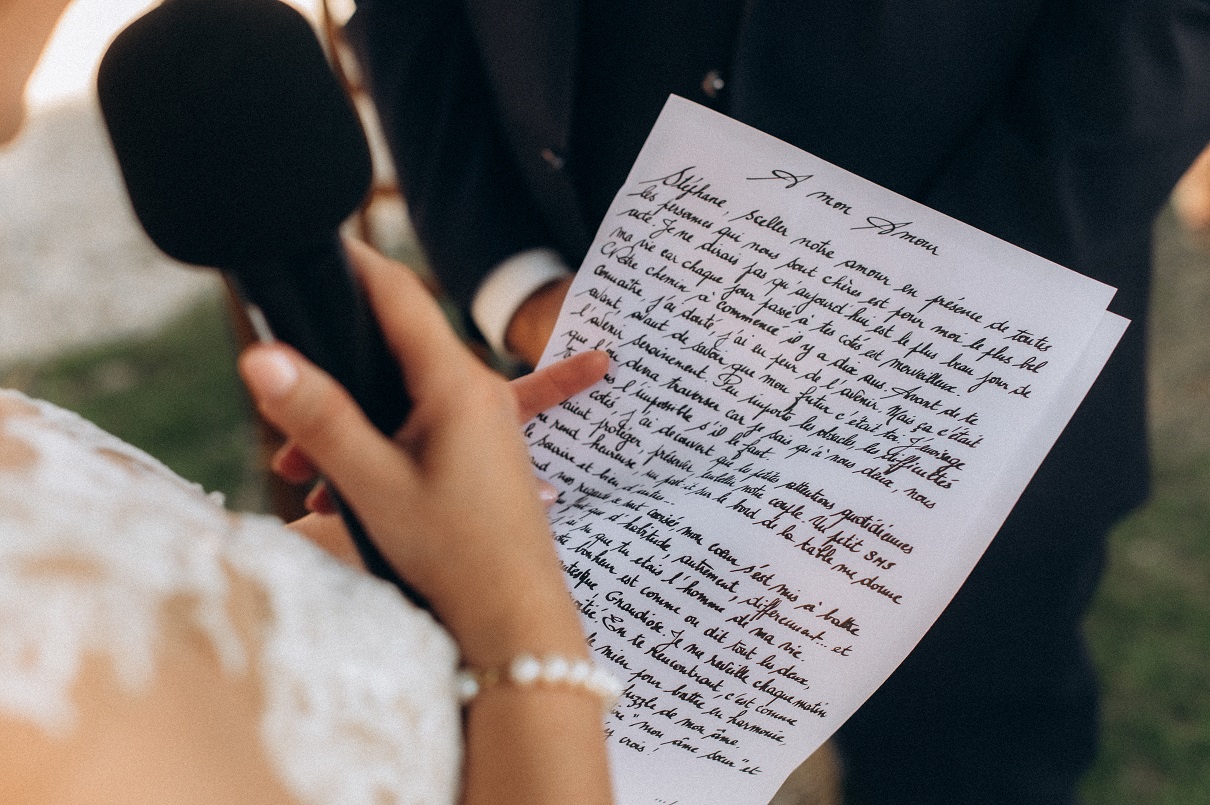 A mon Amour
Stéphane, sceller notre amour en présence de toutes
les personnes qui nous sont chères est pour moi le plus bel
acte. Je ne dirais pas qu'aujourd'hui est le plus beau jour de
ma vie car chaque jour passé à tes côtés est merveilleux.
Notre chemin a commencé il y a deux ans. Avant de te
connaître, j'ai douté, j'ai eu peur de l'avenir. Mais ça c'était
avant, avant de savoir que mon futur c'était toi. J'envisage
l'avenir sereinement. Peu importe les obstacles, les difficultés
que l'on devra traverser car je sais qu'à nous deux, nous
l'impossible s'il le faut.
côtés, j'ai découvert que de petites attentions quotidiennes
protéger, préserver, notre couple. Un petit SMS
rend heureuse, un post-it sur le bord de la table me donne
le sourire et bien d'autres...
nos regards se sont croisés, mon cœur s'est mis à battre
plus fort que d'habitude, autrement, différemment... et
j'ai su que tu étais l'homme de ma vie.
bonheur est comme on dit tout les deux,
Grandiose. Je me réveille chaque matin
En te rencontrant, c'est comme
le mien pour battre en harmonie,
puzzle de mon âme.
"mon âme sœur" et
crois !